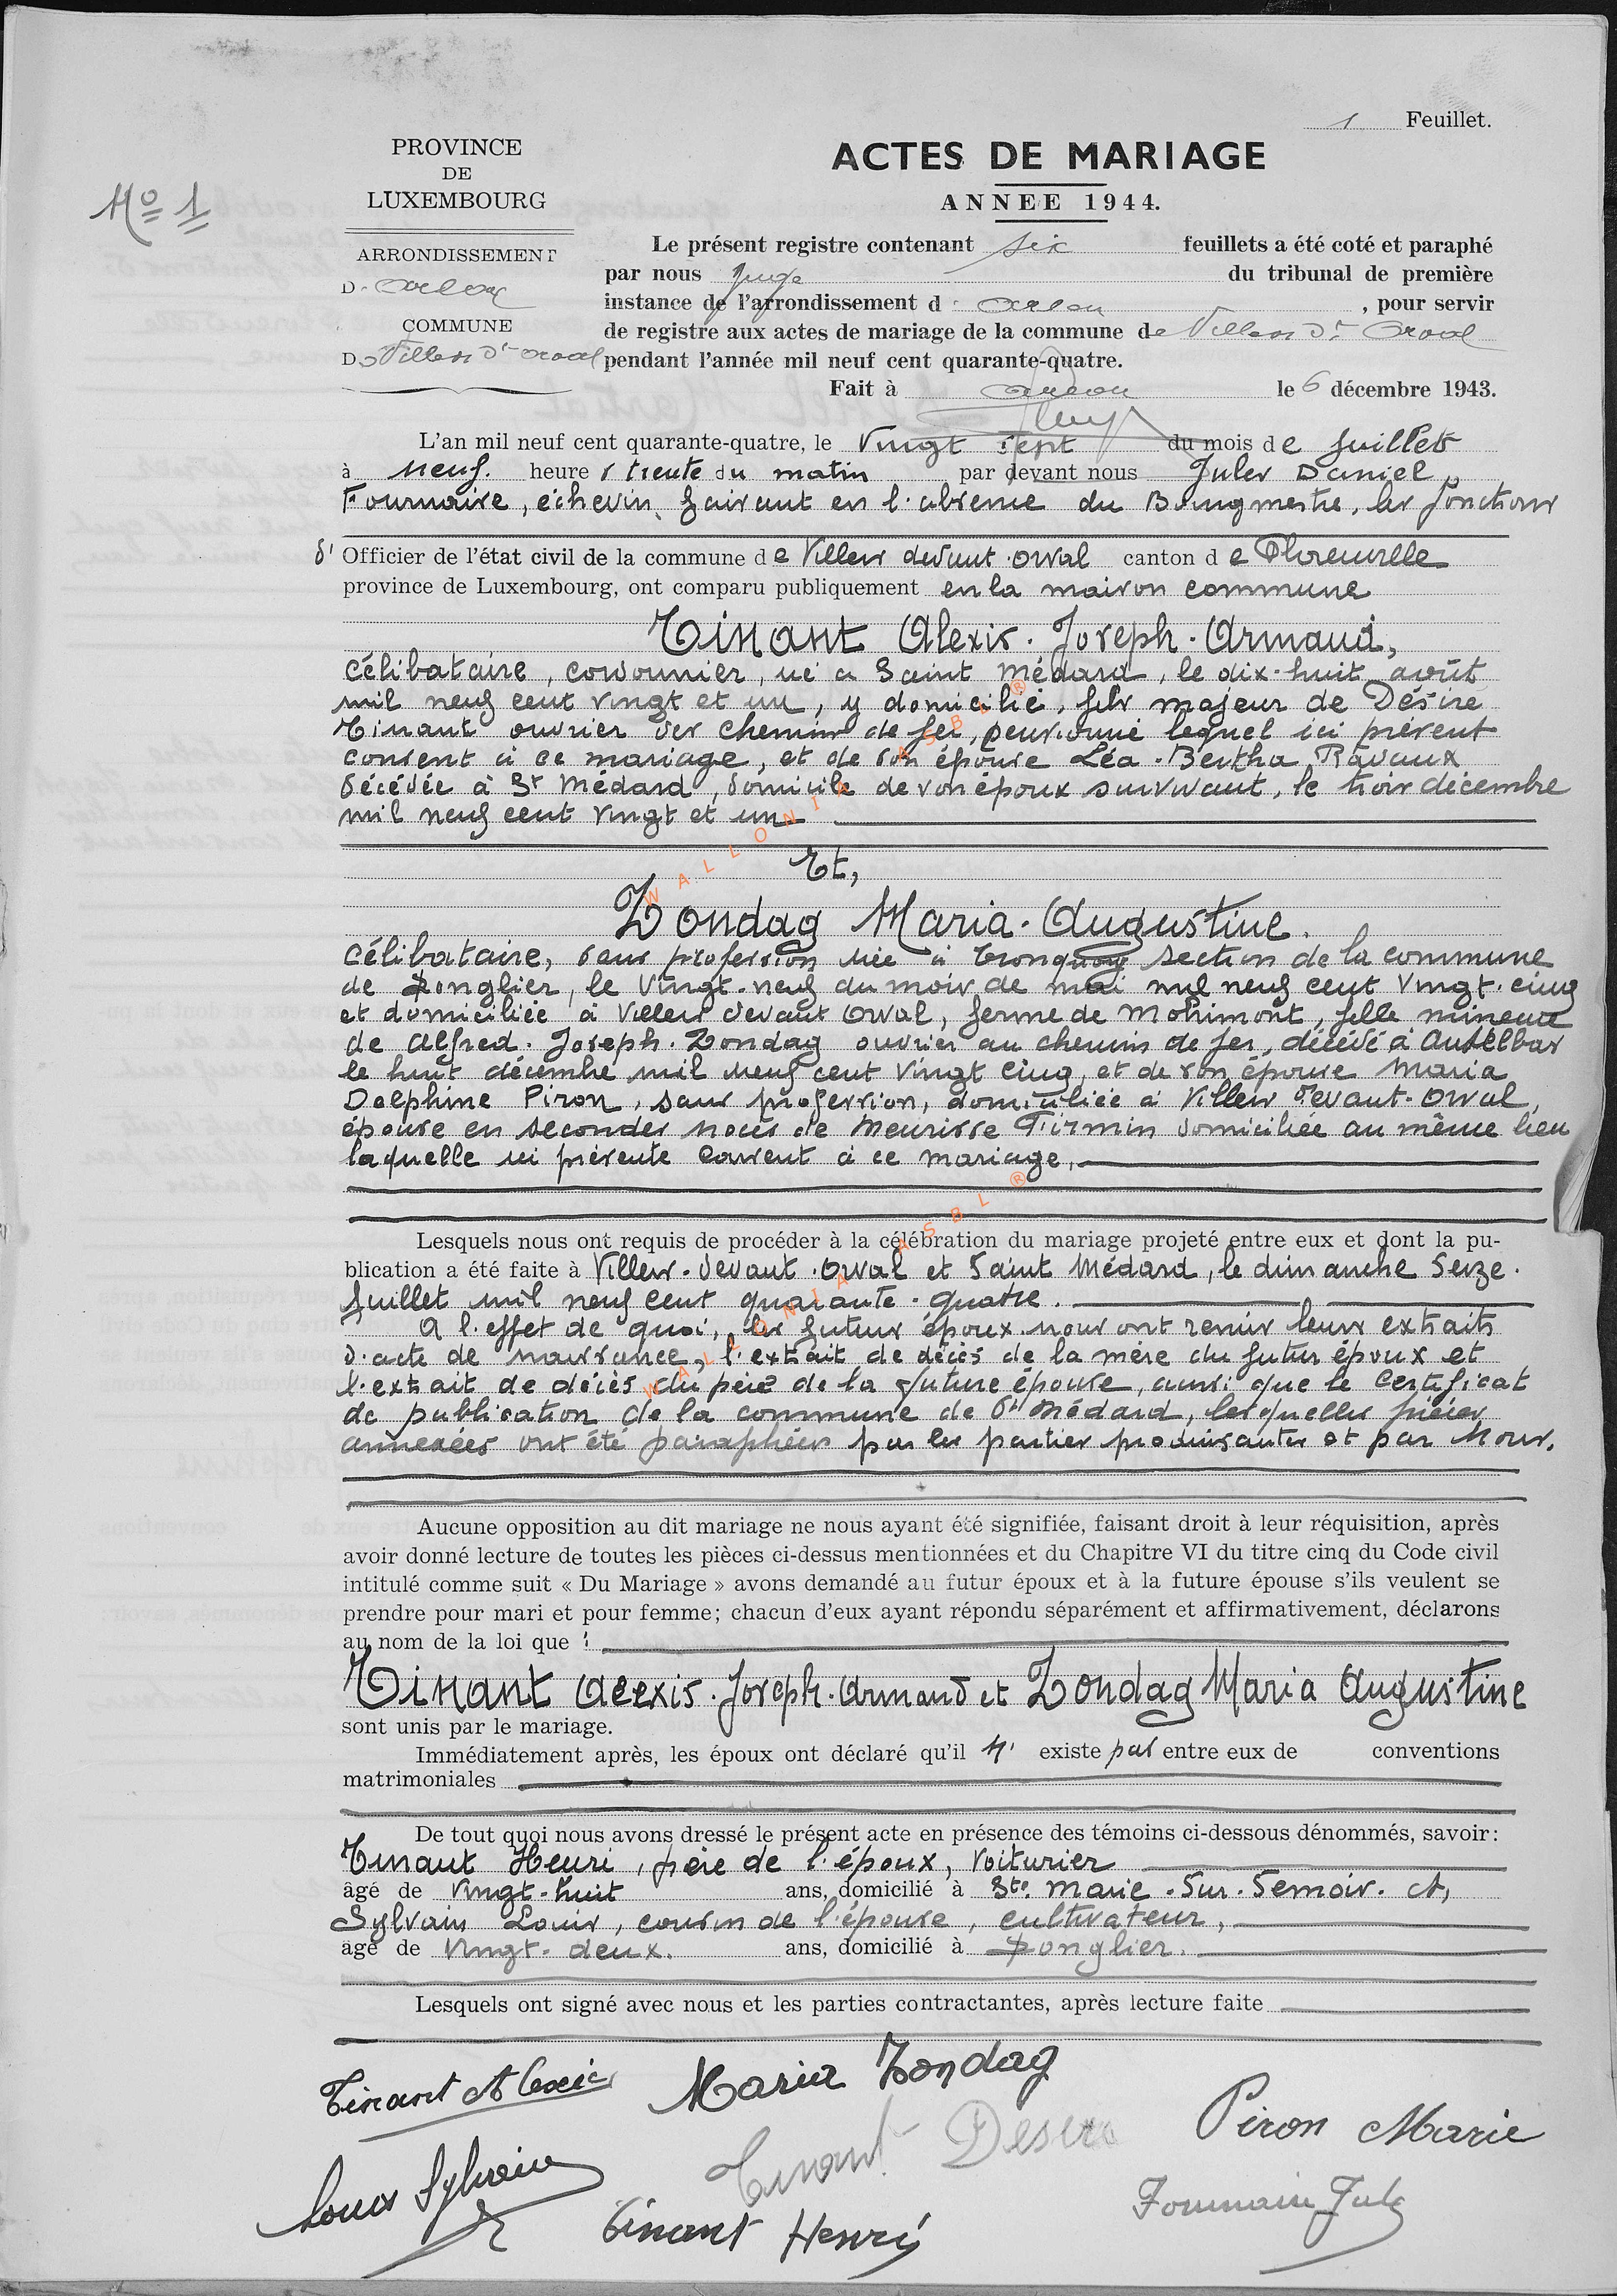 1 Feuillet.
No 1
PROVINCE
DE
LUXEMBOURG
ARRONDISSEMENT
D' Arlon
COMMUNE
De Villers dt Orval
ACTES DE MARIAGE
ANNEE 1944.
Le présent registre contenant six feuillets a été coté et paraphé
par nous Juge du tribunal de première
instance de l'arrondissement d' Arlon, pour servir
de registre aux actes de mariage de la commune de Villers dt Orval
pendant l'année mil neuf cent quarante-quatre.
Fait à Arlon le 6 décembre 1943.
L'an mil neuf cent quarante-quatre, le vingt sept du mois de Juillet
à neuf heures trente du matin par devant nous Jules Daniel
Fournaire, échevin, faisant en l'absence du Bourgmestre, les fonctions
d'Officier de l'état civil de la commune de Villers devant Orval canton de Florenville
province de Luxembourg, ont comparu publiquement en la maison commune
Tinant Alexis. Joseph. Armand,
célibataire, cordonnier, né à Saint Médard, le dix-huit août
mil neuf cent vingt et un, y domicilié, fils majeur de Désiré
Tinant ouvrier des chemins de fer, pensionné lequel ici présent
consent à ce mariage, et de son épouse Léa. Bertha Ravaux
décédée à St Médard, domicile de son époux survivant, le trois décembre
mil neuf cent vingt et un
Et,
Zondag Maria. Augustine.
célibataire, sans profession née à Tronquoy section de la commune
de Longlier, le vingt-neuf du mois de mai mil neuf cent vingt-cinq
et domiciliée à Villers devant Orval, ferme de Mohimont, fille mineure
de Alfred. Joseph. Zondag ouvrier au chemin de fer, décédé à Autelbas
le huit décembre mil neuf cent vingt cinq, et de son épouse Maria
Delphine Piron, sans profession, domiciliée à Villers devant-Orval,
épouse en secondes noces de Meurisse Firmin domiciliée au même lieu
laquelle ici présente consent à ce mariage.
Lesquels nous ont requis de procéder à la célébration du mariage projeté entre eux et dont la pu-
blication a été faite à Villers-devant-Orval et Saint Médard, le dimanche Seize.
Juillet mil neuf cent quarante-quatre.
A l'effet de quoi, les futurs époux nous ont remis leurs extraits
d'acte de naissance, l'extrait de décès de la mère du futur époux et
l'extrait de décès du père de la future épouse, ainsi que le certificat
de publication de la commune de St Médard, lesquelles pièces
annexées ont été paraphées par les parties produisantes et par Nous.
Aucune opposition au dit mariage ne nous ayant été signifiée, faisant droit à leur réquisition, après
avoir donné lecture de toutes les pièces ci-dessus mentionnées et du Chapitre VI du titre cinq du Code civil
intitulé comme suit « Du Mariage » avons demandé au futur époux et à la future épouse s'ils veulent se
prendre pour mari et pour femme; chacun d'eux ayant répondu séparément et affirmativement, déclarons
au nom de la loi que :
Tinant Alexis. Joseph. Armand et Zondag Maria Augustine
sont unis par le mariage.
Immédiatement après, les époux ont déclaré qu'il n' existe pas entre eux de conventions
matrimoniales
De tout quoi nous avons dressé le présent acte en présence des témoins ci-dessous dénommés, savoir:
Tinant Henri, père de l'époux, voiturier
âgé de vingt-huit ans, domicilié à Ste Marie-Sur-Semois. Et,
Sylvain Louis, cousin de l'épouse, cultivateur,
âgé de vingt-deux. ans, domicilié à Longlier.
Lesquels ont signé avec nous et les parties contractantes, après lecture faite
Tinant Alexis Maria Zondag
Tinant Désiré Piron Marie
Louis Sylvain Tinant Henri Fournaire Jules
WALLONIA ASBL ®
WALLONIA ASBL ®